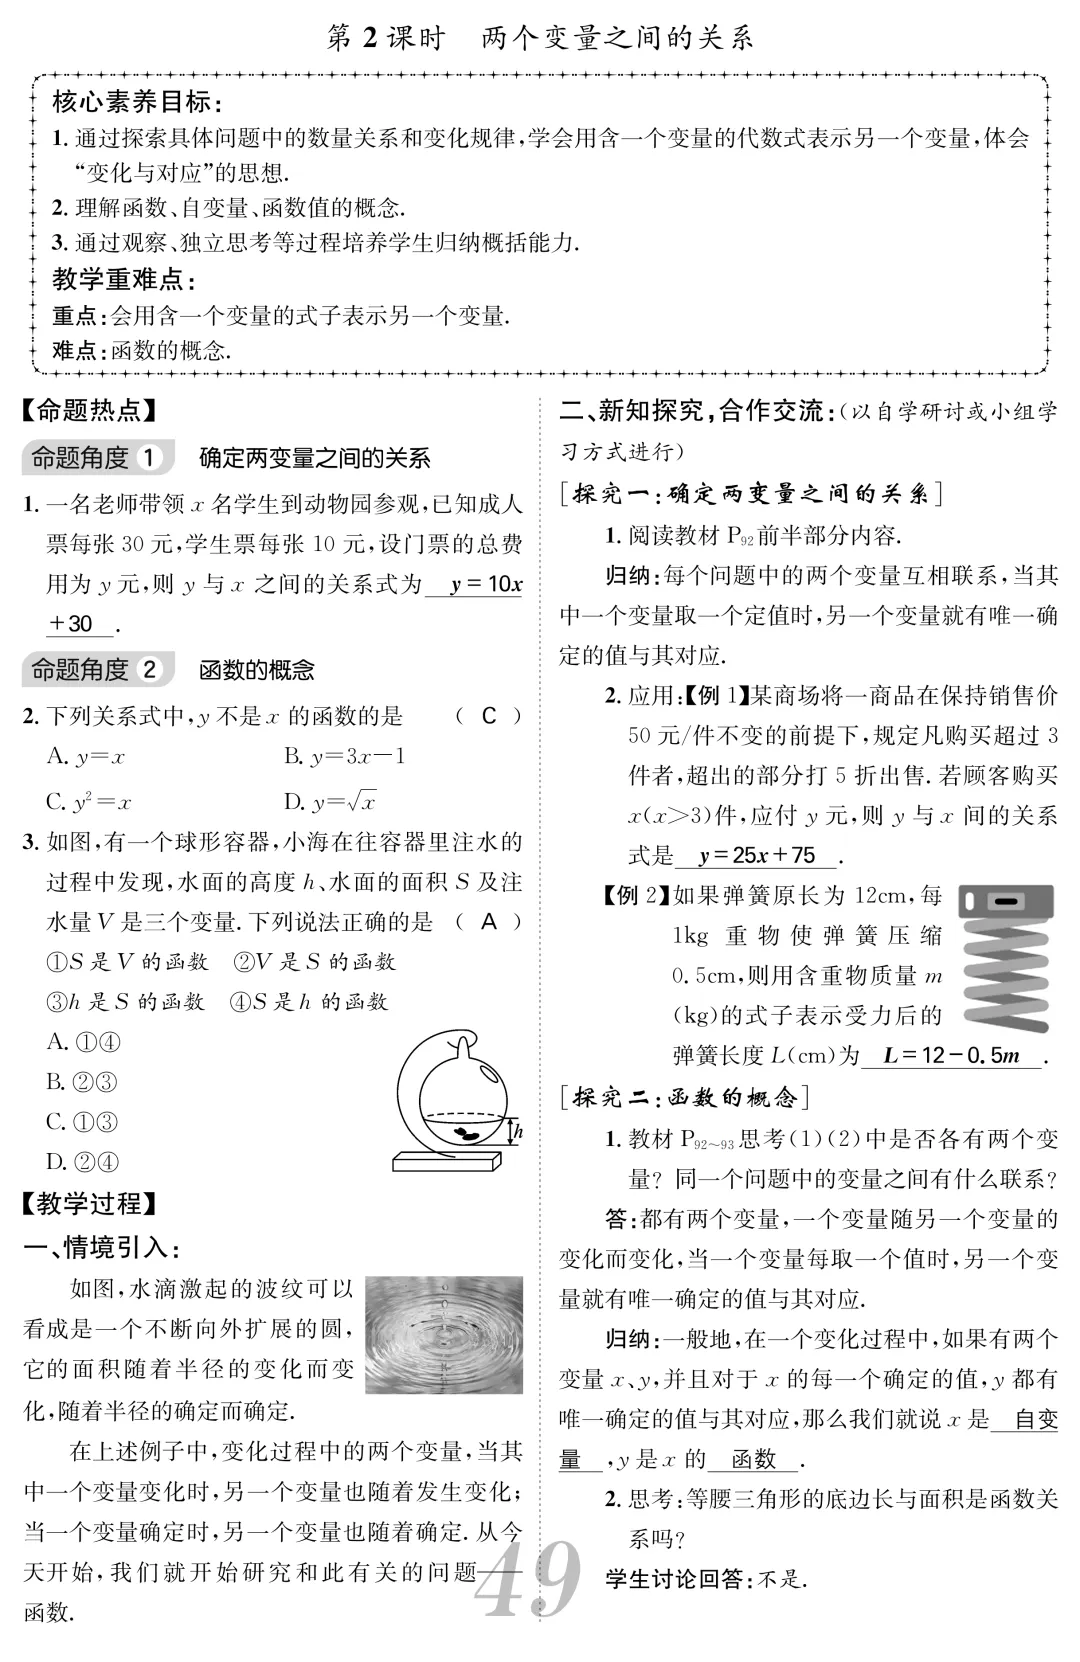 第2课时　两个变量之间的关系
核心素养目标:
1. 通过探索具体问题中的数量关系和变化规律,学会用含一个变量的代数式表示另一个变量,体会
“变化与对应”的思想.
2. 理解函数、自变量、函数值的概念.
3. 通过观察、独立思考等过程培养学生归纳概括能力.
教学重难点:
重点:会用含一个变量的式子表示另一个变量.
难点:函数的概念.
【命题热点】
命题角度 1　确定两变量之间的关系
1. 一名老师带领 x 名学生到动物园参观,已知成人
票每张 30 元,学生票每张 10 元,设门票的总费
用为 y 元,则 y 与 x 之间的关系式为 y=10x
+30 .
命题角度 2　函数的概念
2. 下列关系式中,y 不是 x 的函数的是　( C )
A. y=x　B. y=3x－1
C. y²=x　D. y=√x
3. 如图,有一个球形容器,小海在往容器里注水的
过程中发现,水面的高度 h、水面的面积 S 及注
水量 V 是三个变量. 下列说法正确的是　( A )
①S 是 V 的函数　②V 是 S 的函数
③h 是 S 的函数　④S 是 h 的函数
A. ①④
B. ②③
C. ①③
D. ②④
h
【教学过程】
一、情境引入:
如图,水滴激起的波纹可以
看成是一个不断向外扩展的圆,
它的面积随着半径的变化而变
化,随着半径的确定而确定.
在上述例子中,变化过程中的两个变量,当其
中一个变量变化时,另一个变量也随着发生变化;
当一个变量确定时,另一个变量也随着确定. 从今
天开始,我们就开始研究和此有关的问题——
函数.
二、新知探究,合作交流:(以自学研讨或小组学
习方式进行)
[探究一:确定两变量之间的关系]
1. 阅读教材 P92前半部分内容.
归纳:每个问题中的两个变量互相联系,当其
中一个变量取一个定值时,另一个变量就有唯一确
定的值与其对应.
2. 应用:【例 1】某商场将一商品在保持销售价
50 元/件不变的前提下,规定凡购买超过 3
件者,超出的部分打 5 折出售. 若顾客购买
x(x>3)件,应付 y 元,则 y 与 x 间的关系
式是 y=25x+75 .
【例 2】如果弹簧原长为 12cm,每
1kg 重物使弹簧压缩
0.5cm,则用含重物质量 m
(kg)的式子表示受力后的
弹簧长度 L(cm)为 L=12－0.5m .
[探究二:函数的概念]
1. 教材 P92~93思考(1)(2)中是否各有两个变
量? 同一个问题中的变量之间有什么联系?
答:都有两个变量,一个变量随另一个变量的
变化而变化,当一个变量每取一个值时,另一个变
量就有唯一确定的值与其对应.
归纳:一般地,在一个变化过程中,如果有两个
变量 x、y,并且对于 x 的每一个确定的值,y 都有
唯一确定的值与其对应,那么我们就说 x 是 自变
量 ,y 是 x 的 函数 .
2. 思考:等腰三角形的底边长与面积是函数关
系吗?
学生讨论回答:不是.
49